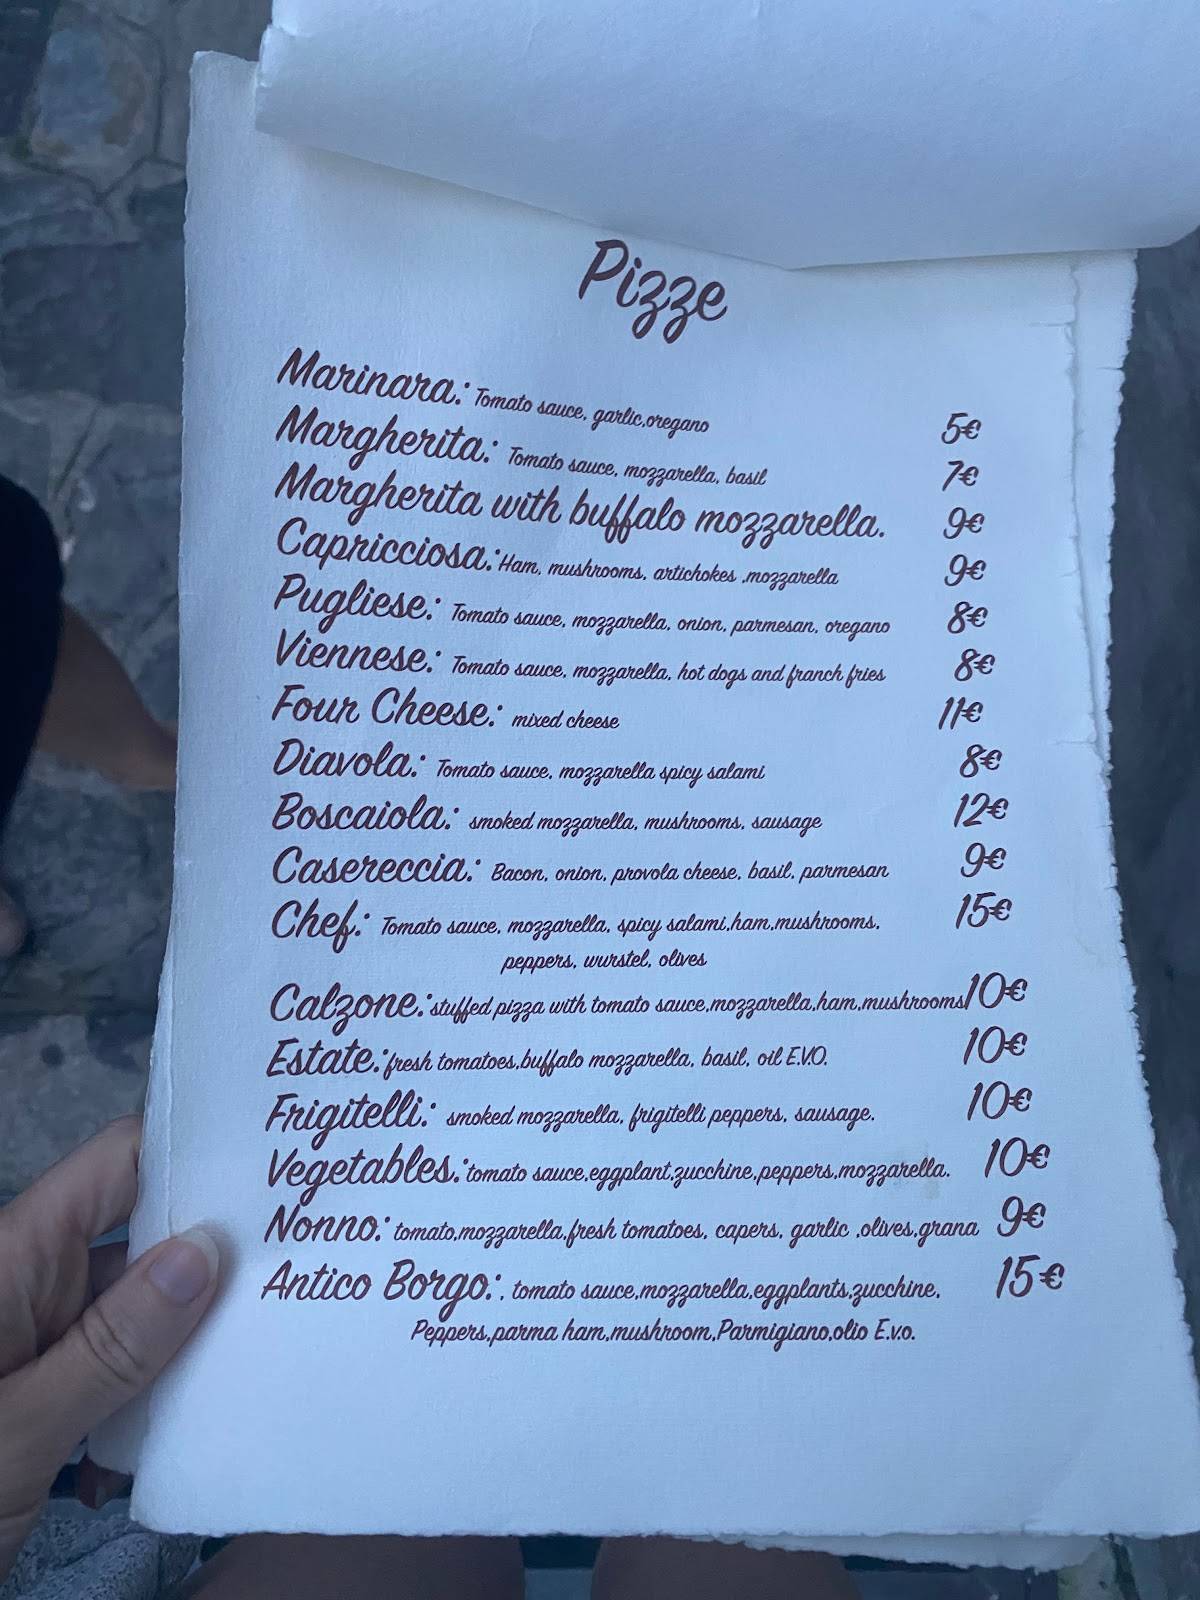 Pizze
Marinara: Tomato sauce, garlic,oregano 5€
Margherita: Tomato sauce, mozzarella, basil 7€
Margherita with buffalo mozzarella. 9€
Capricciosa: Ham, mushrooms, artichokes ,mozzarella 9€
Pugliese: Tomato sauce, mozzarella, onion, parmesan, oregano 8€
Viennese: Tomato sauce, mozzarella, hot dogs and franch fries 8€
Four Cheese: mixed cheese 11€
Diavola: Tomato sauce, mozzarella spicy salami 8€
Boscaiola: smoked mozzarella, mushrooms, sausage 12€
Casereccia: Bacon, onion, provola cheese, basil, parmesan 9€
Chef: Tomato sauce, mozzarella, spicy salami,ham,mushrooms, 15€
peppers, wurstel, olives
Calzone: stuffed pizza with tomato sauce,mozzarella,ham,mushrooms 10€
Estate: fresh tomatoes,buffalo mozzarella, basil, oil E.V.O. 10€
Frigitelli: smoked mozzarella, frigitelli peppers, sausage. 10€
Vegetables: tomato sauce,eggplant,zucchine,peppers,mozzarella. 10€
Nonno: tomato,mozzarella,fresh tomatoes, capers, garlic ,olives,grana 9€
Antico Borgo: , tomato sauce,mozzarella,eggplants,zucchine, 15€
Peppers,parma ham,mushroom,Parmigiano,olio E.v.o.